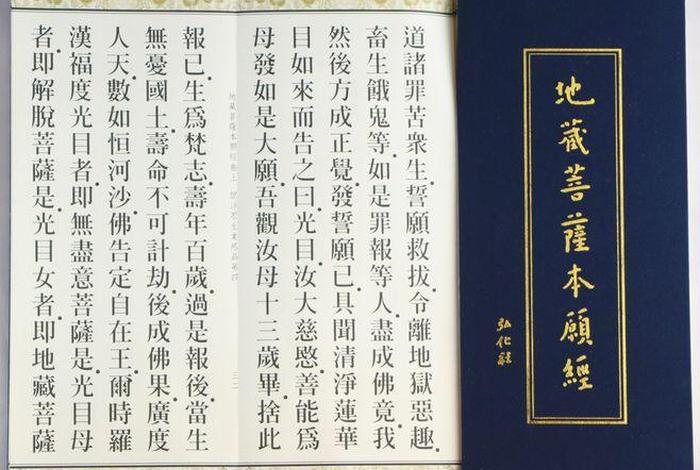 地藏菩薩本願經
弘化社
道諸罪苦衆生。誓願救拔。令離地獄惡趣。
畜生餓鬼等。如是罪報等人。盡成佛竟。我
然後方成正覺。發誓願已。具聞清淨蓮華
目如來而告之曰。光目。汝大慈愍。善能爲
母發如是大願。吾觀汝母十三歲畢。捨此
地藏菩薩本願經卷上 閻浮衆生業感品第四
報已。生爲梵志。壽年百歲。過是報後。當生
無憂國土。壽命不可計劫。後成佛果。廣度
人天。數如恒河沙。佛告定自在王。爾時羅
漢福度光目者。即無盡意菩薩是。光目母
者。即解脫菩薩是。光目女者。即地藏菩薩